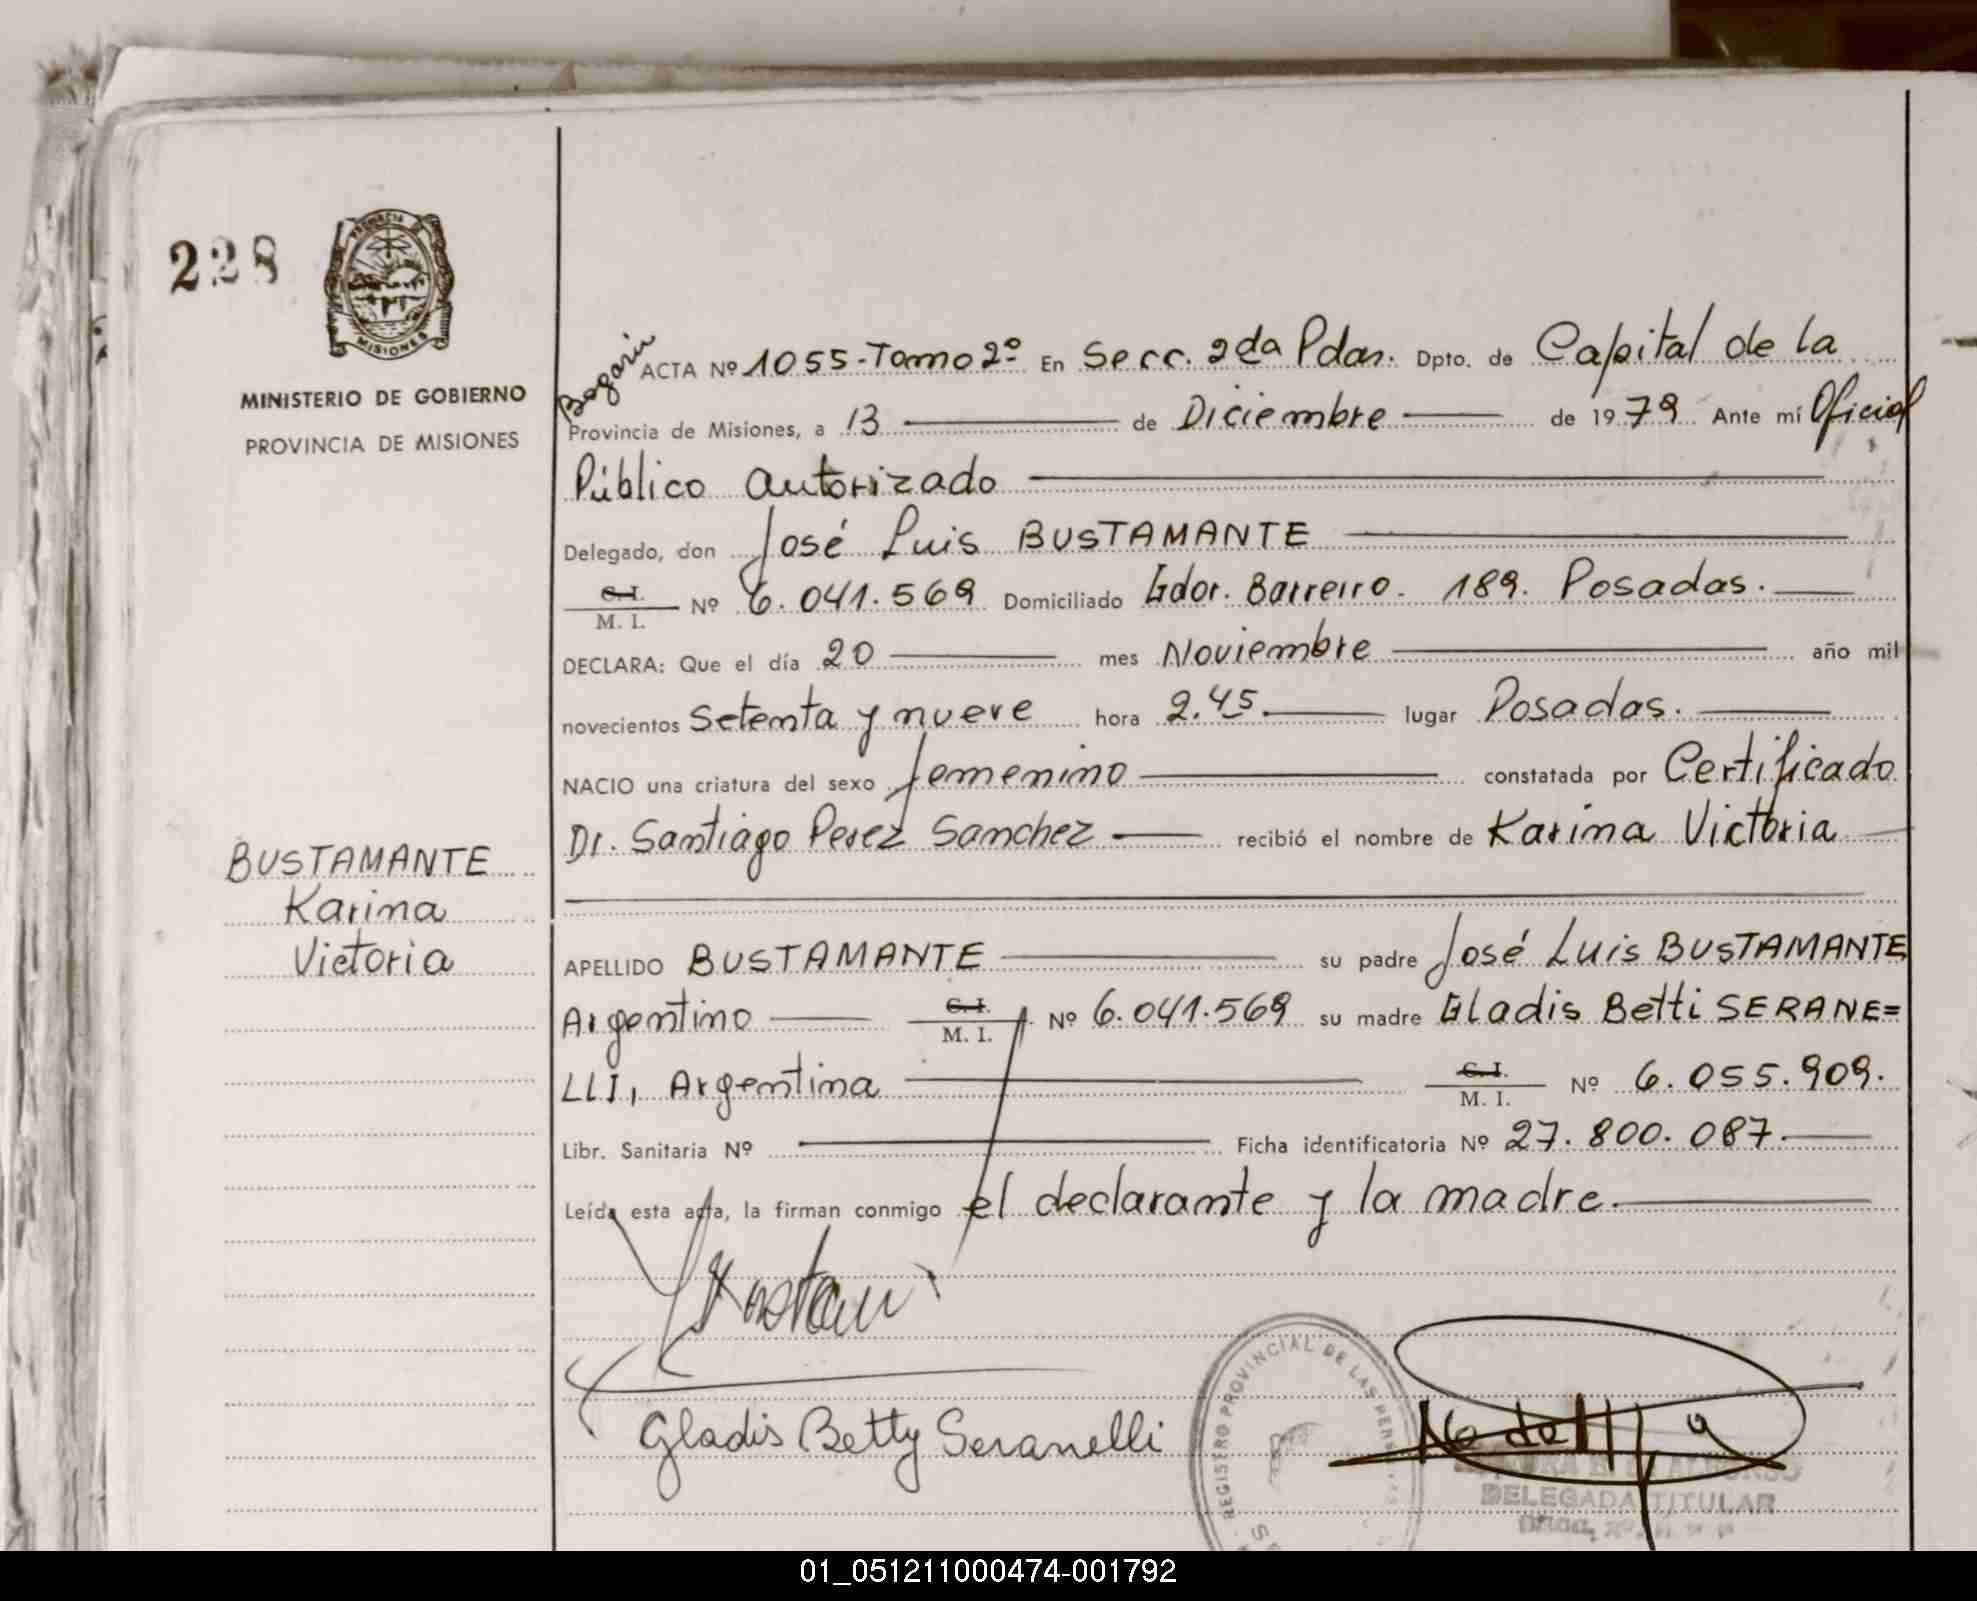 228
PROVINCIA
MISIONES
MINISTERIO DE GOBIERNO
PROVINCIA DE MISIONES
BUSTAMANTE
Karina
Victoria
ACTA Nº 1055-Tomo 2º En Secc. 2da Pdas. Dpto. de Capital de la
Provincia de Misiones, a 13 de Diciembre de 1979 Ante mí Oficial
Público autorizado
Delegado, don José Luis BUSTAMANTE
C.I.
M. I. Nº 6.041.569 Domiciliado Gdor. Barreiro. 189. Posadas.
DECLARA: Que el día 20 mes Noviembre año mil
novecientos setenta y nueve hora 2.45. lugar Posadas.
NACIO una criatura del sexo femenino constatada por Certificado
Dr. Santiago Perez Sanchez recibió el nombre de Karina Victoria
APELLIDO BUSTAMANTE su padre José Luis BUSTAMANTE
Argentino C.I.
M. I. Nº 6.041.569 su madre Gladis Betti SERANE=
LLI, Argentina C.I.
M. I. Nº 6.055.909.
Libr. Sanitaria Nº Ficha identificatoria Nº 27.800.087.
Leída esta acta, la firman conmigo el declarante y la madre.
Gladis Betty Seranelli
REGISTRO PROVINCIAL DE LAS PERS
DELEGADA TITULAR
01_051211000474-001792